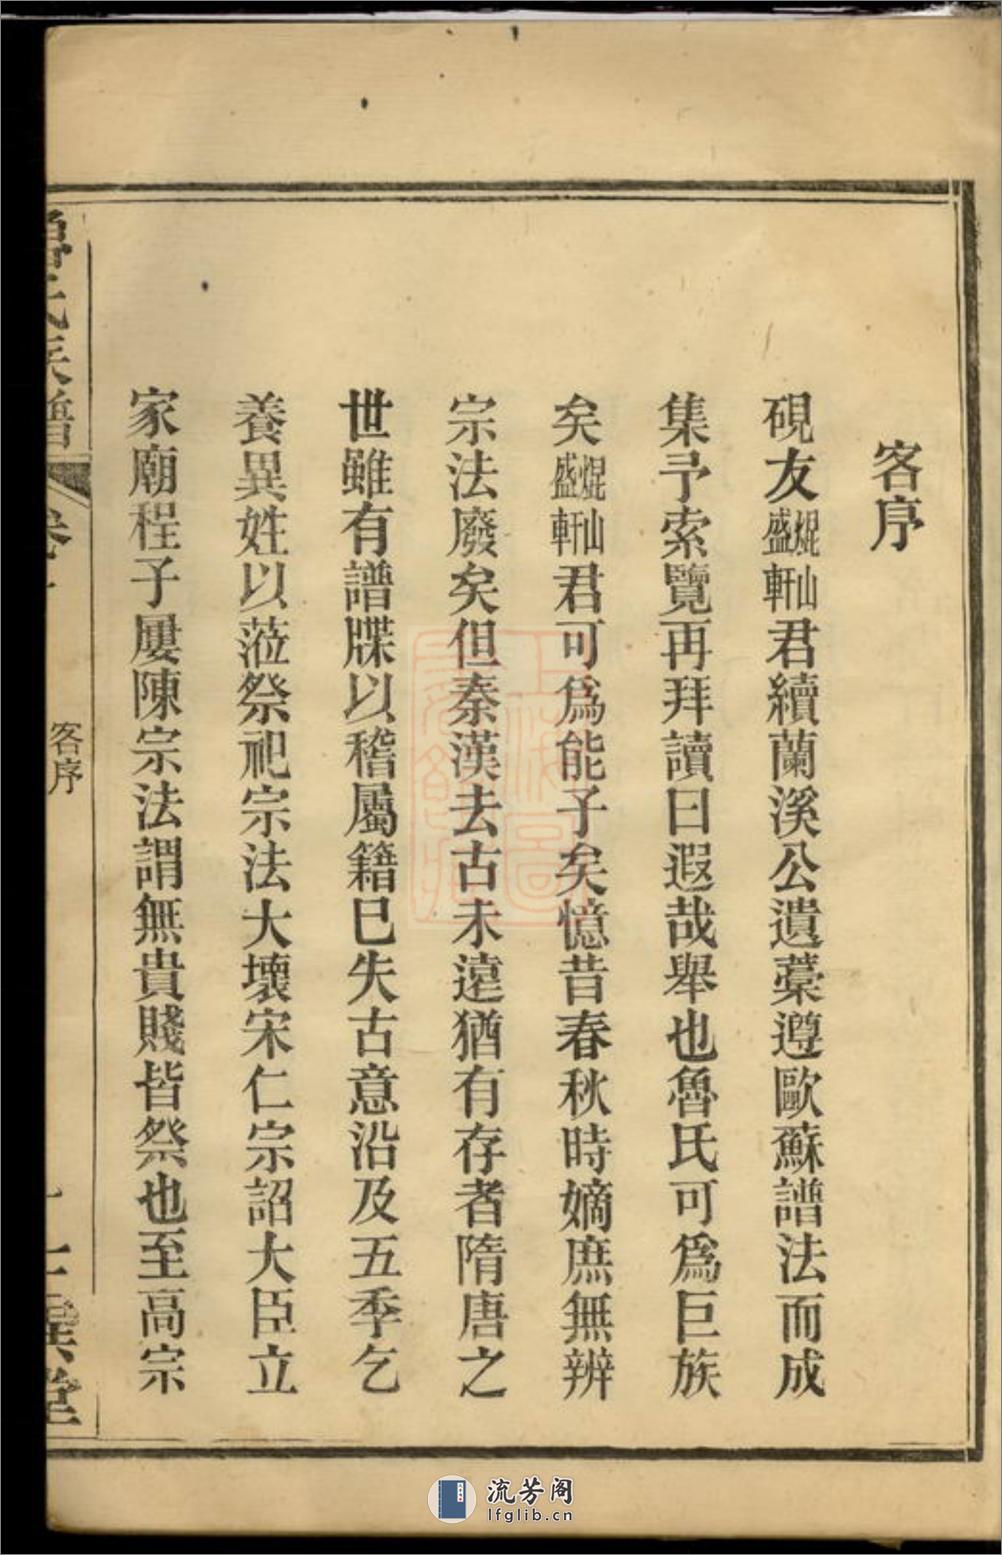 客序
硯友焜山盛軒君續蘭溪公遺藁遵歐蘇譜法而成
集予索覽再拜讀曰遐哉舉也魯氏可爲巨族
矣焜山盛軒君可爲能子矣憶昔春秋時嫡庶無辨
宗法廢矣但秦漢去古未遠猶有存者隋唐之
世雖有譜牒以稽屬籍巳失古意沿及五季乞
養異姓以蒞祭祀宗法大壞宋仁宗詔大臣立
家廟程子屢陳宗法謂無貴賤皆祭也至高宗
魯氏族譜
客序
流芳阁
lfglib.cn